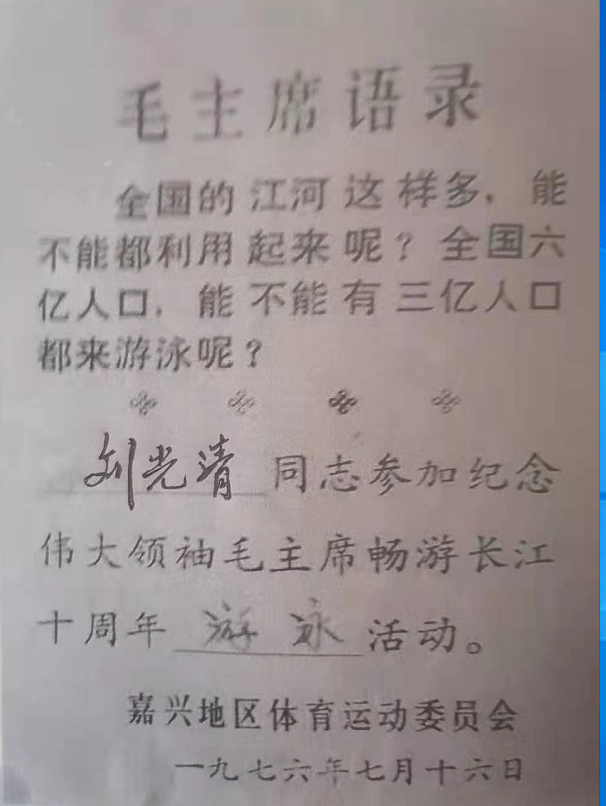 毛主席语录
全国的江河这样多，能
不能都利用起来呢？全国六
亿人口，能不能有三亿人口
都来游泳呢？
刘光清同志参加纪念
伟大领袖毛主席畅游长江
十周年游泳活动。
嘉兴地区体育运动委员会
一九七六年七月十六日